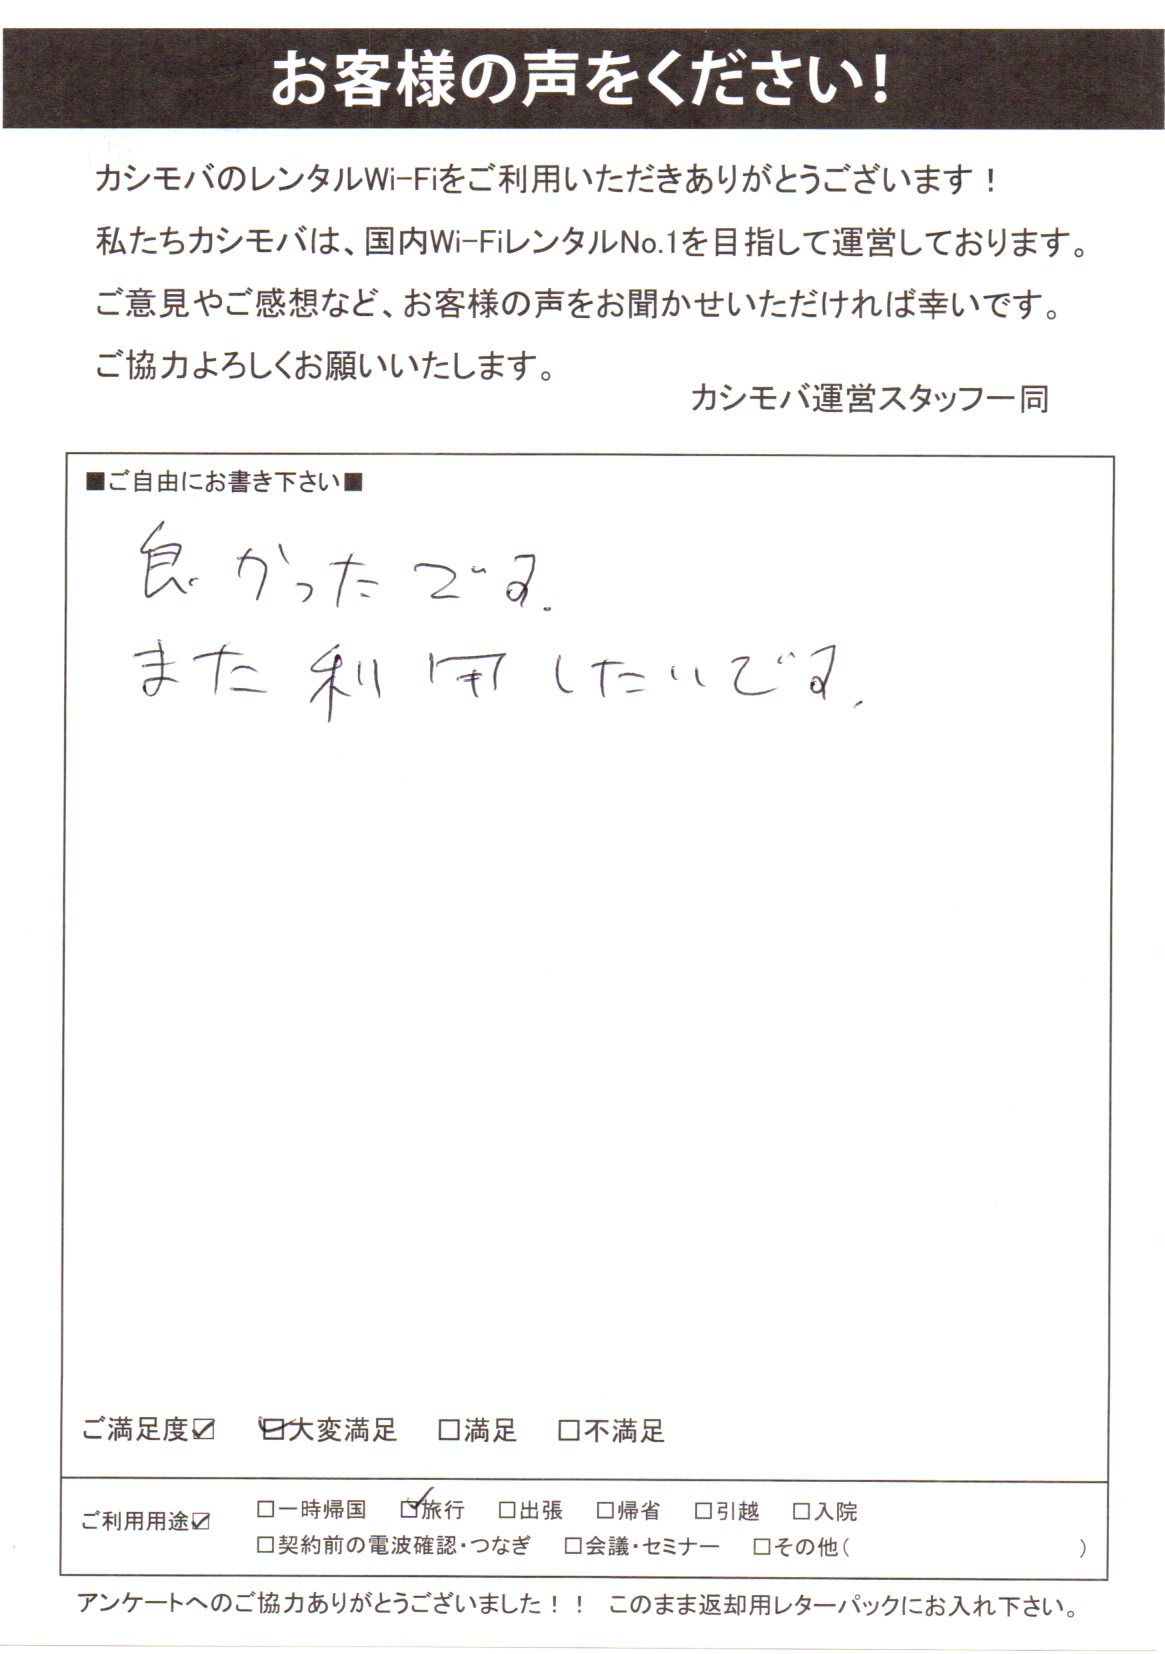 お客様の声をください！
カシモバのレンタルWi-Fiをご利用いただきありがとうございます！
私たちカシモバは、国内Wi-FiレンタルNo.1を目指して運営しております。
ご意見やご感想など、お客様の声をお聞かせいただければ幸いです。
ご協力よろしくお願いいたします。
カシモバ運営スタッフ一同
■ご自由にお書き下さい■
良かったです.
また利用したいです.
ご満足度☑ ☑大変満足 □満足 □不満足
ご利用用途☑ □一時帰国 ☑旅行 □出張 □帰省 □引越 □入院
□契約前の電波確認・つなぎ □会議・セミナー □その他( )
アンケートへのご協力ありがとうございました！！ このまま返却用レターパックにお入れ下さい。